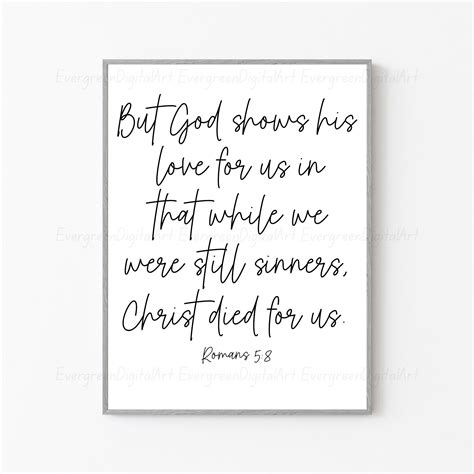 EvergreenDigitalArt EvergreenDigitalArt EvergreenDigitalArt
But God shows his
love for us in
EvergreenDigitalArt EvergreenDigitalArt EvergreenDigitalArt
that while we
EvergreenDigitalArt EvergreenDigitalArt EvergreenDigitalArt
were still sinners,
Christ died for us.
Romans 5:8
EvergreenDigitalArt EvergreenDigitalArt EvergreenDigitalArt